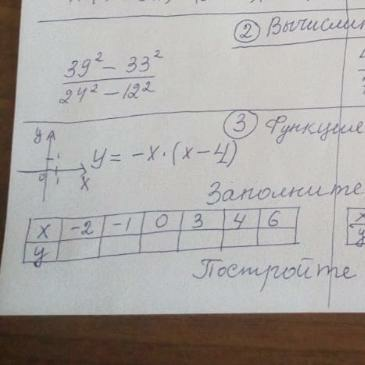 ② Вычислит
39² − 33²
24² − 12²
③ Функцие
y
0
x
y = −x·(x−4)
Заполните
x −2 −1 0 3 4 6
y
x
y
Постройте